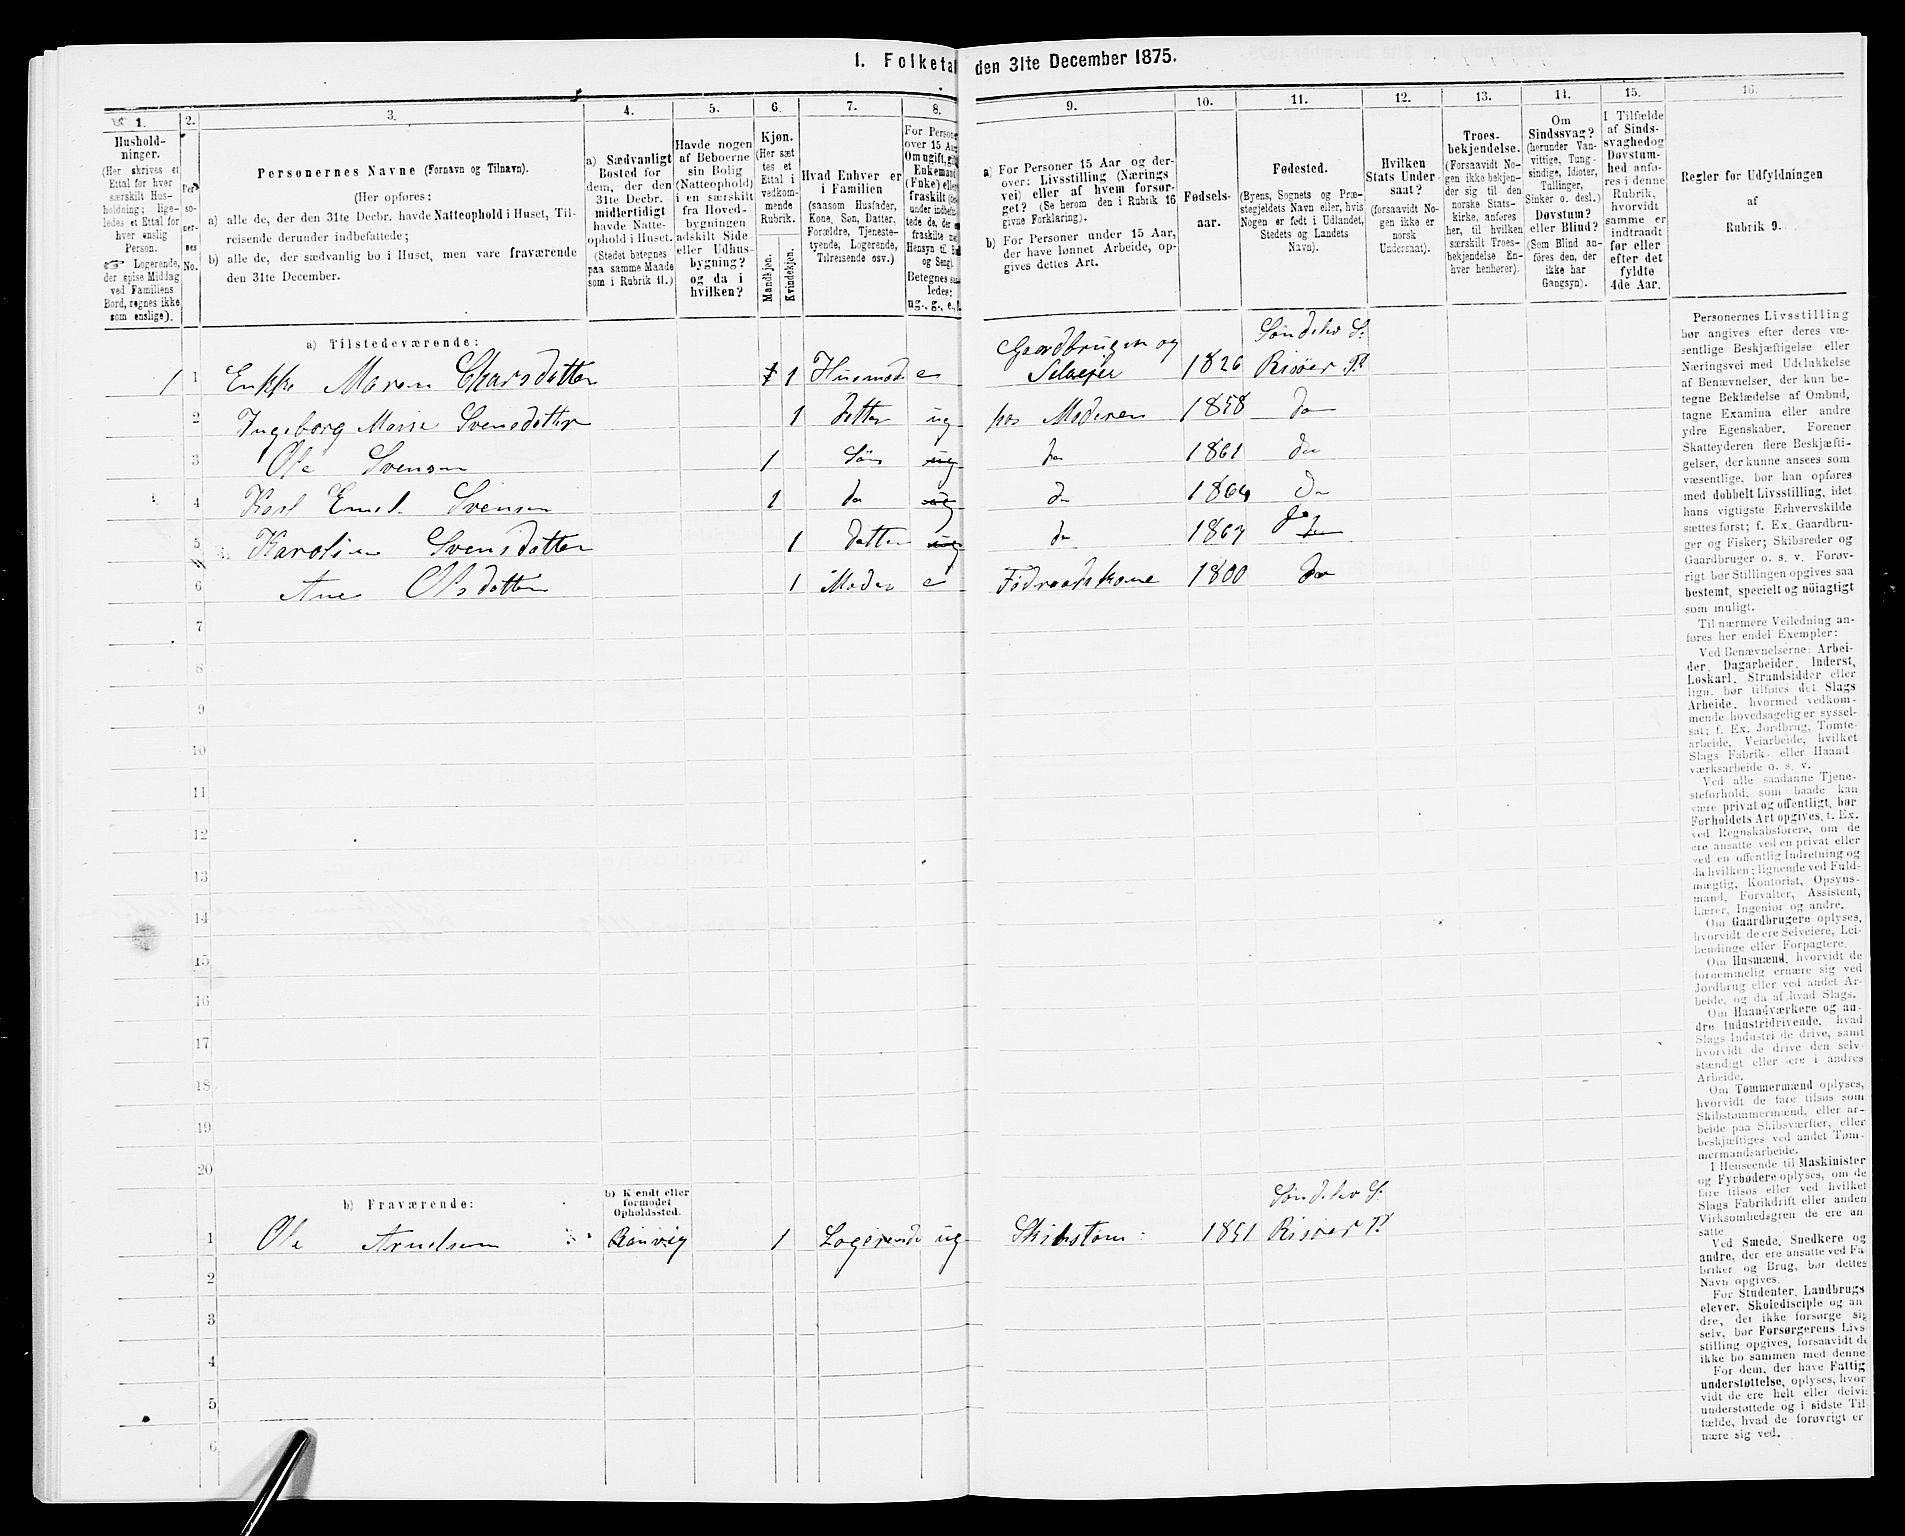 1. Folketal den 31te December 1875.
1.
Hushold-
ninger.
(Her skrives et
Ettal for hver
særskilt Hus-
holdning; lige-
ledes et Ettal for
hver enslig
Person.
☞ Logerende,
der spise Middag
ved Familiens
Bord, regnes ikke
som enslige).
2.
Per-
so-
ner-
nes
No.
3.
Personernes Navne (Fornavn og Tilnavn).
(Her opføres:
a) alle de, der den 31te Decbr. havde Natteophold i Huset, Til-
reisende derunder indbefattede;
b) alle de, der sædvanlig bo i Huset, men vare fraværende
den 31te December.
4.
a) Sædvanligt
Bosted for
dem, der den
31te Decbr.
midlertidigt
havde Natte-
ophold i Huset.
(Stedet betegnes
paa samme Maade
som i Rubrik 11.)
5.
Havde nogen
af Beboerne
sin Bolig
(Natteophold)
i en særskilt
fra Hoved-
bygningen
adskilt Side-
eller Udhus-
bygning?
og da i
hvilken?
6.
Kjøn.
(Her sæt-
tes et
Ettal i
vedkom-
mende
Rubrik.
Mandkjøn.
Kvindekjøn.
7.
Hvad Enhver er
i Familien
(saasom Husfader,
Kone, Søn, Datter,
Forældre, Tjeneste-
tyende, Logerende,
Tilreisende osv.)
8.
For Person
over 15 Aar
Om ugift, gift,
Enkemand
(Enke) eller
fraskilt
under indbefat-
tede de, der
fraskilte
Hensyn til
og Seng).
Betegnes saa-
ledes:
ug., g., e.,
9.
a) For Personer 15 Aar og der-
over: Livsstilling (Nærings-
vei) eller af hvem forsør-
get? (Se herom den i Rubrik 16
givne Forklaring).
b) For Personer under 15 Aar,
der have lønnet Arbeide, op-
gives dettes Art.
10.
Fødsels-
aar.
11.
Fødested.
(Byens, Sognets og Præ-
stegjeldets Navn eller, hvis
Nogen er født i Udlandet,
Stedets og Landets
Navn).
12.
Hvilken
Stats Under-
saat?
(forsaavidt No-
gen ikke er
norsk
Undersaat).
13.
Troes-
bekjendelse.
(Forsaavidt No-
gen ikke bekjen-
der sig til den
norske Stats-
kirke, anføres
her, til hvilken
særskilt Troes-
bekjendelse En-
hver henhører).
14.
Om
Sindssvag?
(herunder Van-
vittige, Tung-
sindige, Idioter,
Tullinger,
Sinker o. desl.)
Døvstum?
eller Blind?
(Som Blind an-
føres den, der
ikke har
Gangsyn).
15.
I Tilfælde
af Sinds-
svaghed og
Døvstum-
hed anfø-
res i denne
Rubrik,
hvorvidt
samme er
indtraadt
før eller
efter det
fyldte
4de Aar.
16.
Regler for Udfyldningen
af
Rubrik 9.
a) Tilstedeværende:
1 1 Enkke Maren Olsdatter 1 Husmod e Gaardbruger og Selveier 1826 Søndelev S. Risøer P.
2 Ingeborg Marie Svensdatter 1 datter ug hos Moderen 1858 do
3 Ole Svensen 1 Søn ug do 1861 do
4 Karl Emil Svensen 1 do ug do 1864 do
5 Karoline Svensdatter 1 datter ug do 1867 do
6 Ane Olsdatter 1 Moder e Fødraadskone 1800 do
7
8
9
10
11
12
13
14
15
16
17
18
19
20
b) Fraværende:
b) Kjendt eller
formodet
Opholdssted.
1 Ole 1 Logerende ug 1851 Søndelev S. Risøer P.
2
3
4
5
6
Personernes Livsstilling
bør angives efter deres væ-
sentlige Beskjæftigelse eller
Næringsvei med Udelukkelse
af Benævnelser, der kun be-
tegne Beklædelse af Ombud,
tagne Examina eller andre
ydre Egenskaber. Forener
Skatteyderen flere Beskjæfti-
gelser, der kunne ansees som
væsentlige, bør han opføres
med dobbelt Livsstilling, idet
hans vigtigste Erhvervskilde
sættes først; f. Ex. Gaardbru-
ger og Fisker; Skibsreder og
Gaardbruger o. s. v. Forøv-
rigt bør Stillingen opgives saa
bestemt, specielt og nöiagtigt
som muligt.
Til nærmere Veiledning an-
føres her endel Exempler:
Ved Benævnelserne: Arbei-
der, Dagarbeider, Inderst,
Løskarl, Strandsidder eller
lign. bør tilføies det Slags
Arbeide, hvormed vedkom-
mende hovedsagelig er syssel-
sat; f. Ex. Jordbrug, Tomte-
arbeide, Veiarbeide, hvilket
Slags Fabrik- eller Haand-
værksarbeide o. s. v.
Ved alle saadanne Tjene-
steforhold, som baade kan
være privat og offentligt, bør
Forholdets Art opgives, t. Ex.
ved Regnskabsførere, om de
ere ansatte ved en privat eller
ved en offentlig Indretning og
da hvilken; lignende ved Fuld-
mægtig, Kontorist, Opsyns-
mand, Forvalter, Assistent,
Lærer, Ingeniør og andre.
Om Gaardbrugere oplyses,
hvorvidt de ere Selveiere, Lei-
lændinge eller Forpagtere.
Om Husmænd, hvorvidt de
fornemmelig ernære sig ved
Jordbrug eller ved andet Ar-
beide, og da af hvad Slags.
Om Haandværkere og an-
dre Industridrivende, hvad
Slags Industri de drive, samt
hvorvidt de drive den selv-
stændigt eller ere i andres
Arbeide.
Om Tømmermænd oplyses,
hvorvidt de fare tilsøs som
Skibstømmermænd, eller ar-
beide paa Skibsværfter, eller
beskjæftiges ved andet Tøm-
mermandsarbeide.
I Henseende til Maskinister
og Fyrbødere oplyses, om de
fare tilsøs eller ved hvilket
Slags Fabrikdrift eller anden
Virksomhedsgren de ere an-
satte.
Ved Smede, Snedkere og
andre, der ere ansatte ved Fa-
briker og Brug, bør dettes
Navn opgives.
For Studenter, Landbrugs-
elever, Skoledisciple og an-
dre, der ikke forsørge sig
selv, bør Forsørgerens Livs-
stilling opgives, forsaavidt de
ikke bo sammen med denne.
For dem, der have Fattig-
understøttelse, oplyses, hvor-
vidt de ere helt eller delvis
understøttede og i sidste Til-
fælde, hvad de forøvrigt er-
nære sig ved.